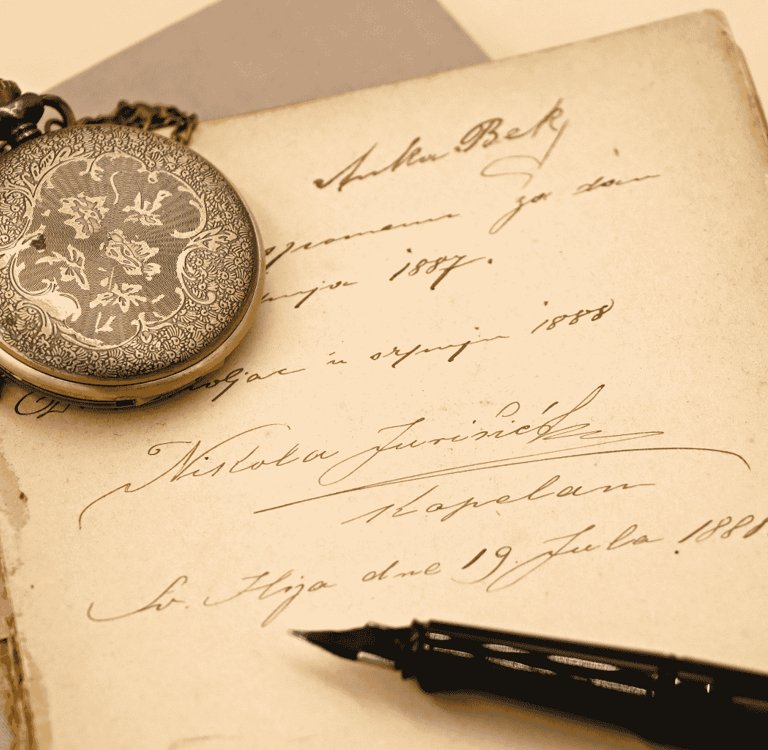 Anka Bek
za dan
1887.
u srpnju 1888
Nikola Jurišić
Kapelan
Sv. Ilija dne 19. Jula 188